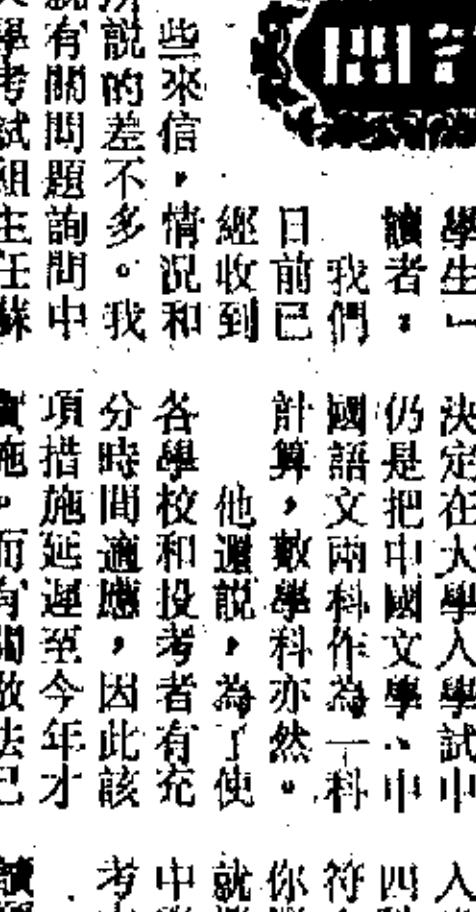 學生」
讀者：
我們
日前已
經收到
些來信，情況和
所說的差不多。我
就有關問題詢問中
大學考試組主任蘇
決定在大學入學試中
仍是把中國文學、中
國語文兩科作為一科
計算，數學科亦然。
他還說，為了使
各學校和投考者有充
分時間適應，因此該
項措施延遲至今年才
實施。而有關做法已
入
四
符
你
就
中
考
讀